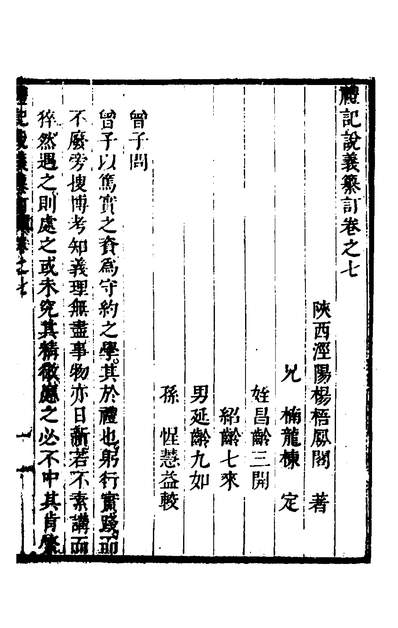 禮記說義纂訂卷之七
陝西涇陽楊梧鳳閣 著
兄 楠龍棟 定
姪昌齡三開
紹齡七來
男延齡九如
孫 惺慧益較
曾子問
曾子以篤實之資為守約之學其於禮也躬行實踐而
不廢旁搜博考知義理無盡事物亦日新若不素講而
猝然遇之則處之或未究其精微慮之必不中其肯綮
禮記說義纂訂 卷之七 一